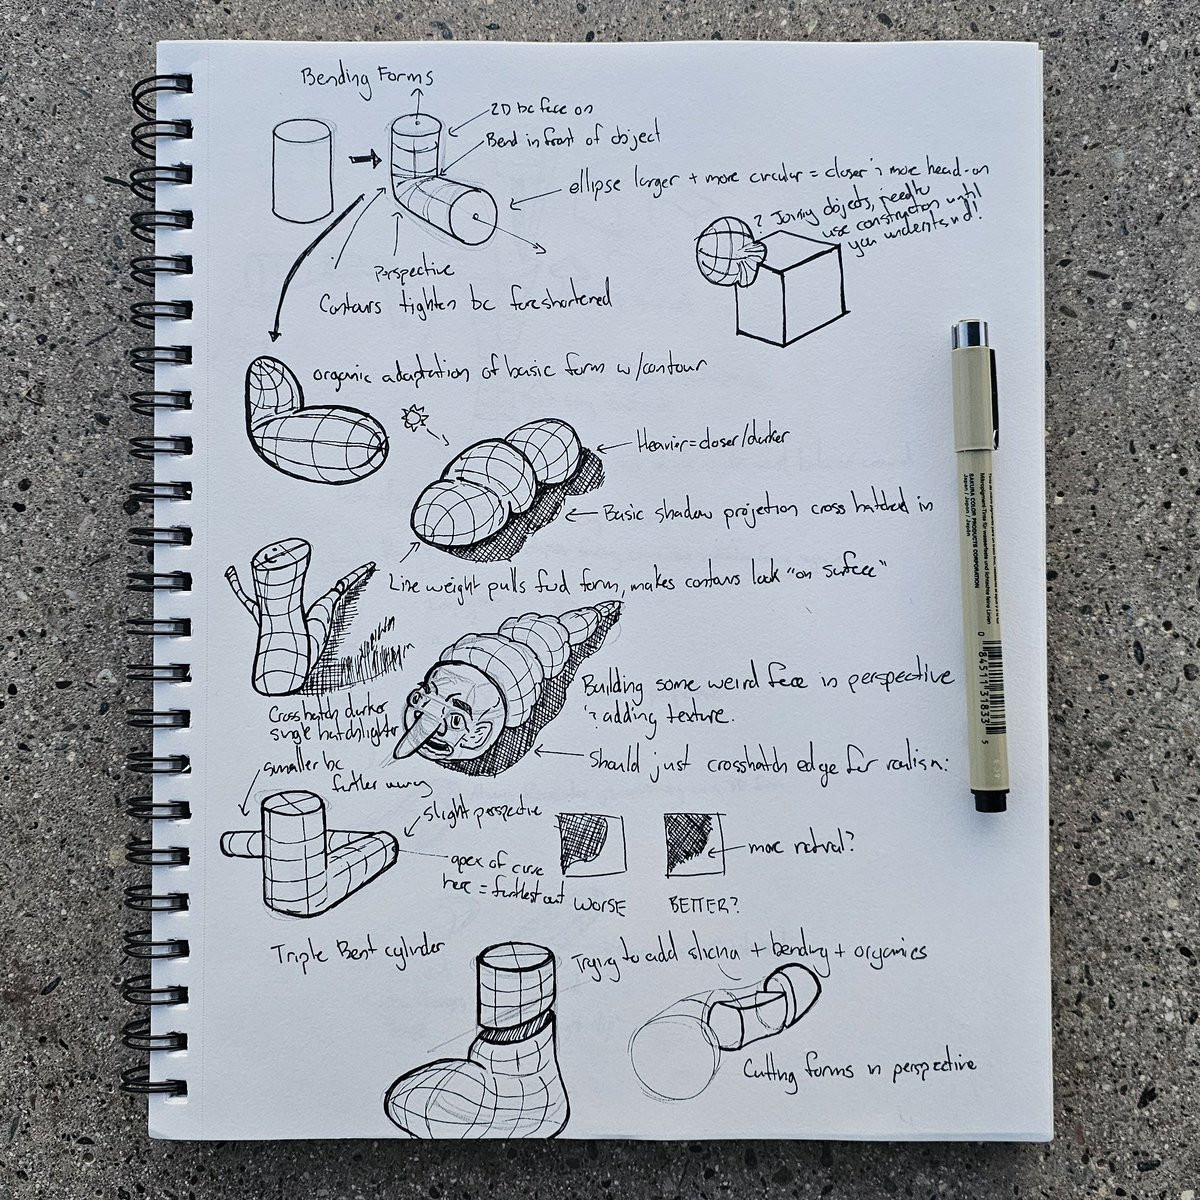 Bending Forms
2D bc face on
Bend in front of object
ellipse larger + more circular = closer & more head-on
? Joining objects, need to
use construction until
you understand!
Perspective
Contours tighten bc foreshortened
organic adaptation of basic form w/contour
Heavier=closer/darker
Basic shadow projection cross hatched in
Line weight pulls fwd form, makes contours look "on surface"
Building some weird face in perspective
& adding texture.
Crosshatch darker
single hatch lighter
Should just crosshatch edge for realism:
smaller bc
further away
slight perspective
apex of curve
here = furthest out
more natural?
WORSE
BETTER?
Triple Bent cylinder
Trying to add slicing + bending + organics
Cutting forms in perspective
SAKURA COLOR PRODUCTS CORPORATION
Japan / Japon / Japón
0 84511 31833 5